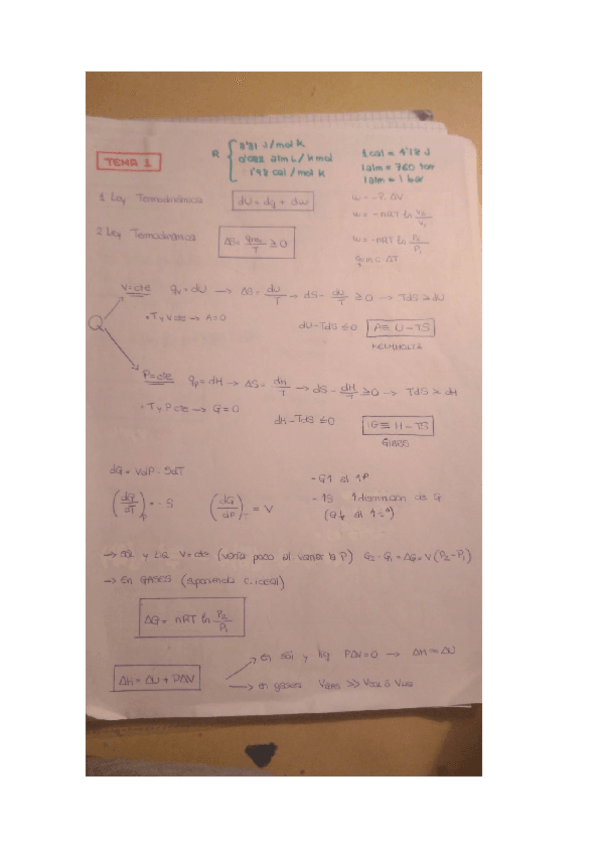 TEMA 1
R { 8'31 J/mol K
0'082 atm L / K mol
1'98 cal / mol K
1 cal = 4'18 J
1 atm = 760 torr
1 atm = 1 bar
1 Ley Termodinámica dU = dq + dw
w = -P·ΔV
w = -nRT ln V₂/V₁
2 Ley Termodinámica ΔS = /T ≥ 0
w = -nRT ln P₁
V=cte qv = dU → ΔS = dU/T → dS - dU/T ≥ 0 → TdS ≥ dU
• T y V cte → A=0
dU - TdS ≤ 0 A ≡ U - TS
HELMHOLTZ
Q
P=cte qp = dH → ΔS = dH/T → dS - dH/T ≥ 0 → TdS ≥ dH
• T y P cte → G=0
dH - TdS ≤ 0 G ≡ H - TS
GIBBS
dG = VdP - SdT
(dG/dT)p = -S (dG/dP)T = V
- G↑ al ↑P
- ↑S de G
(G↓ al )
→ Sól y Líq V=cte (varía poco al variar la P) G₂-G₁ = ΔG = V(P₂-P₁)
→ En GASES (suponiendo c. ideal)
ΔG = nRT ln P₂/P₁
ΔH = ΔU + PΔV
en sól y líq PΔV=0 → ΔH=ΔU
en gases Vgas >> Vsól ó Vlíq